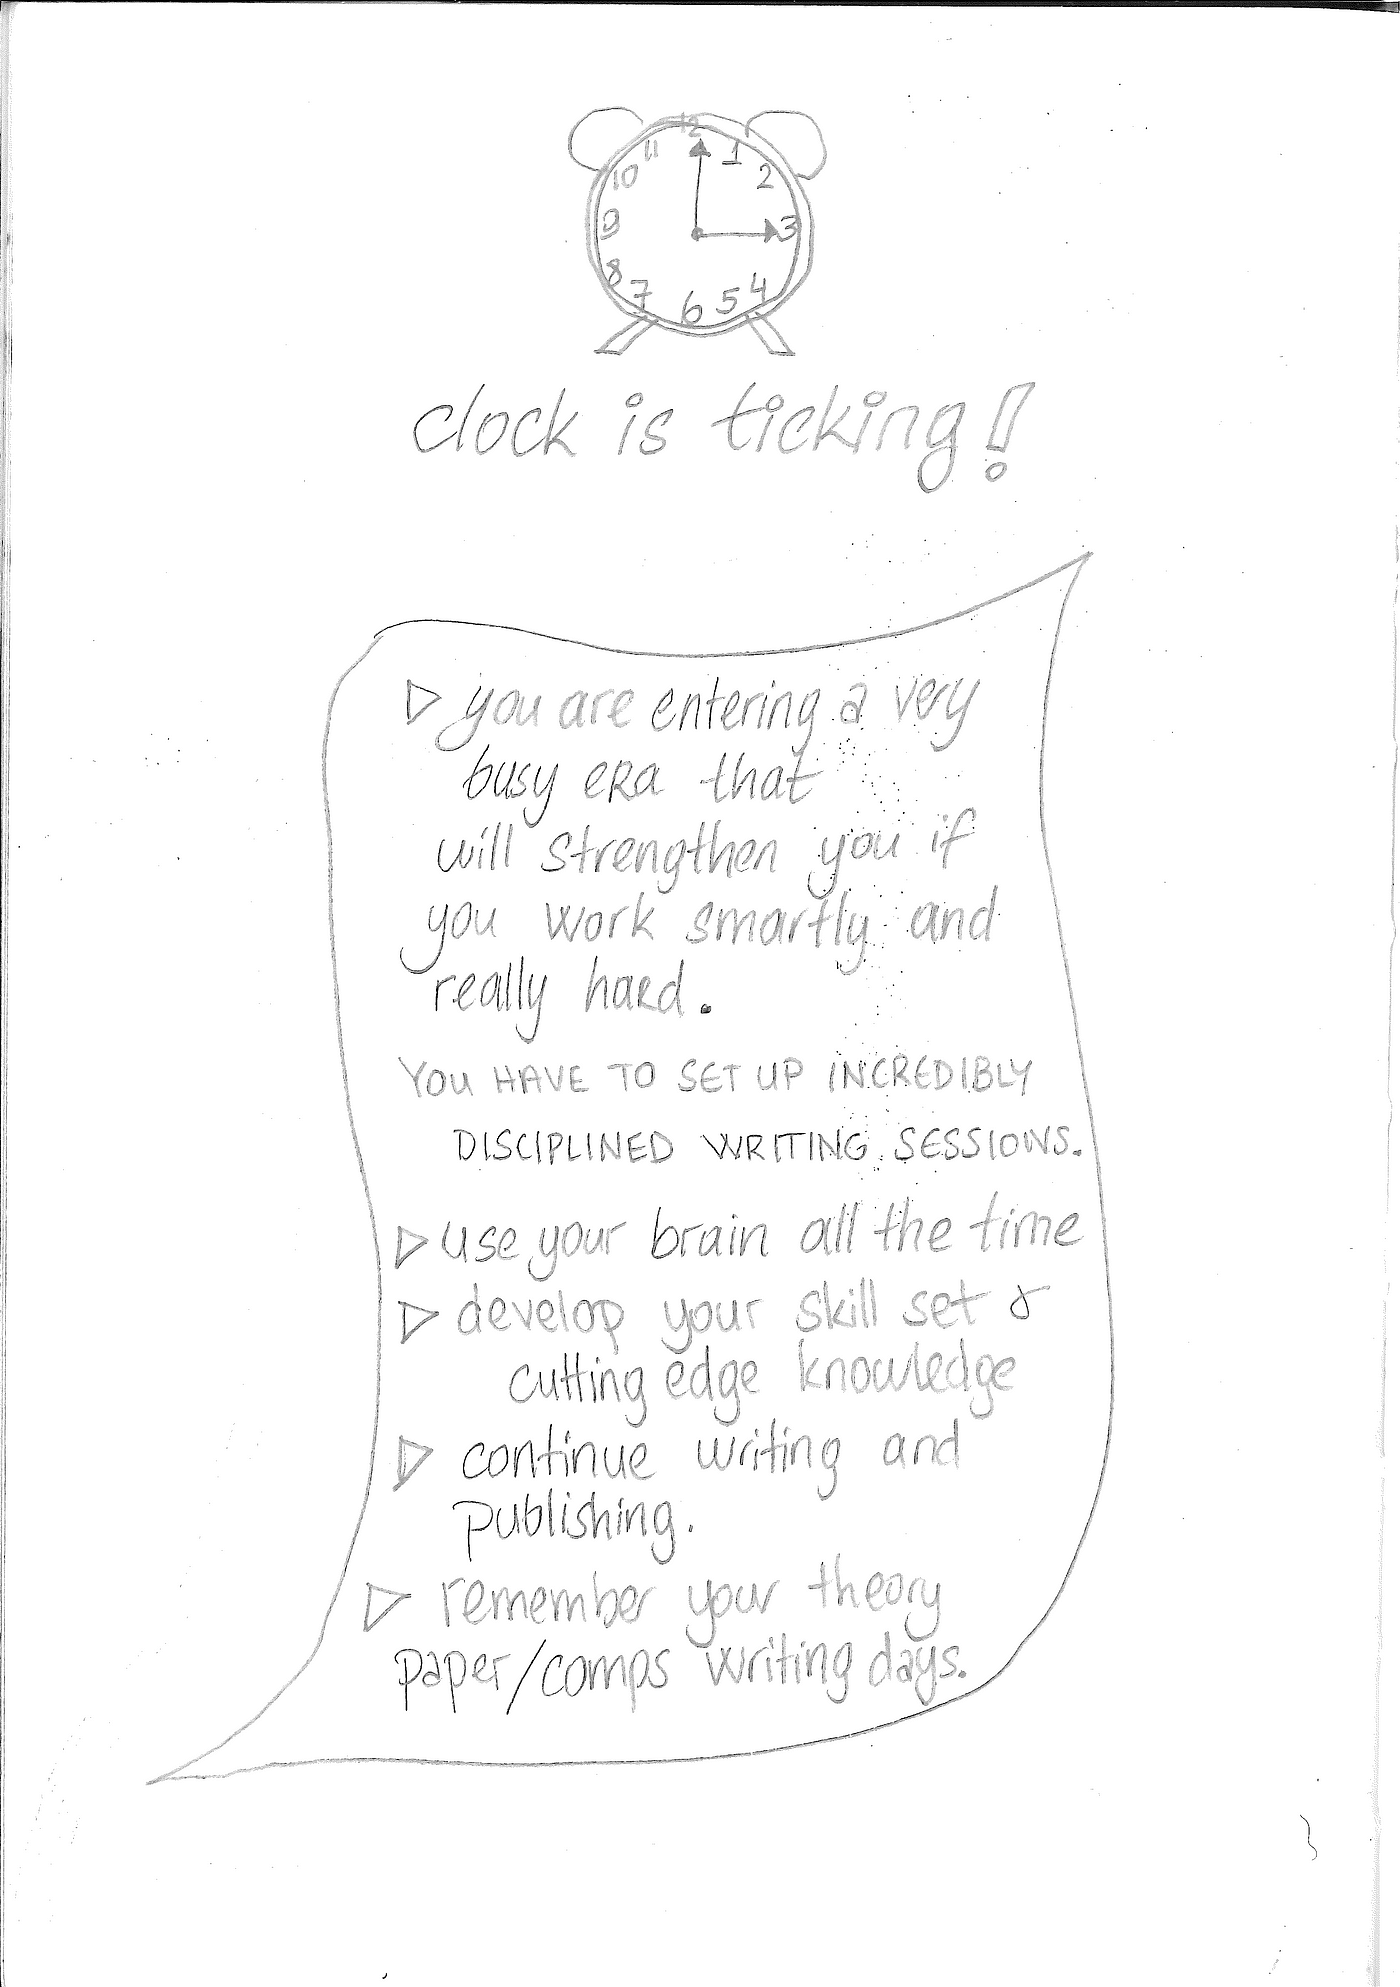 12
11
1
10
2
9
3
8
4
7
5
6
clock is ticking!
▷ you are entering a very
busy era that
will strengthen you if
you work smartly and
really hard.
YOU HAVE TO SET UP INCREDIBLY
DISCIPLINED WRITING SESSIONS.
▷ use your brain all the time
▷ develop your skill set &
cutting edge knowledge
▷ continue writing and
publishing.
▷ remember your theory
paper/comps writing days.